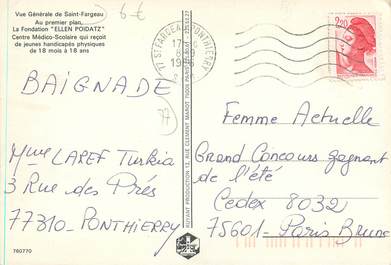 Vue Générale de Saint-Fargeau
Au premier plan
La Fondation "ELLEN POIDATZ"
Centre Médico-Scolaire qui reçoit
de jeunes handicapés physiques
de 18 mois à 18 ans
6€
77 ST FARGEAU PONTHIERRY
17
1986
2,20
BAIGNADE
77
Mme LAREF Turkia
3 Rue des Prés
77310 - PONTHIERRY
RUYANT PRODUCTION 12, RUE CLEMENT MAROT - 75008 PARIS
Femme Actuelle
Grand Concours gagnant
de l'été
Cedex 8032
75601 - Paris Brune
760770